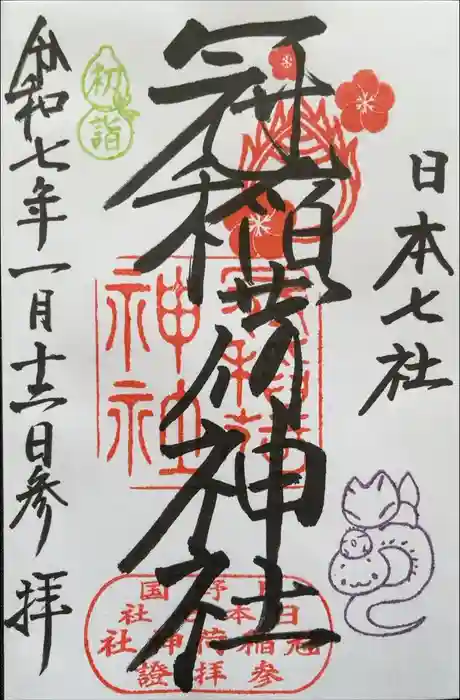 日本七社
冠稲荷神社
令和七年一月十六日参拝
初詣
冠稲荷
神社
上野国
日本七社
冠稲荷神社
参拝證